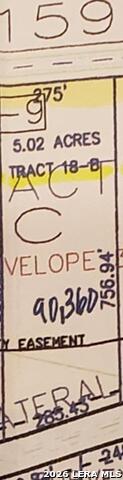 159
275'
-9
5.02 ACRES
TRACT 18-B
ACT
C
VELOPE
90,360
756.94'
Y EASEMENT
ATERAL
285.45'
2026 LERA MLS